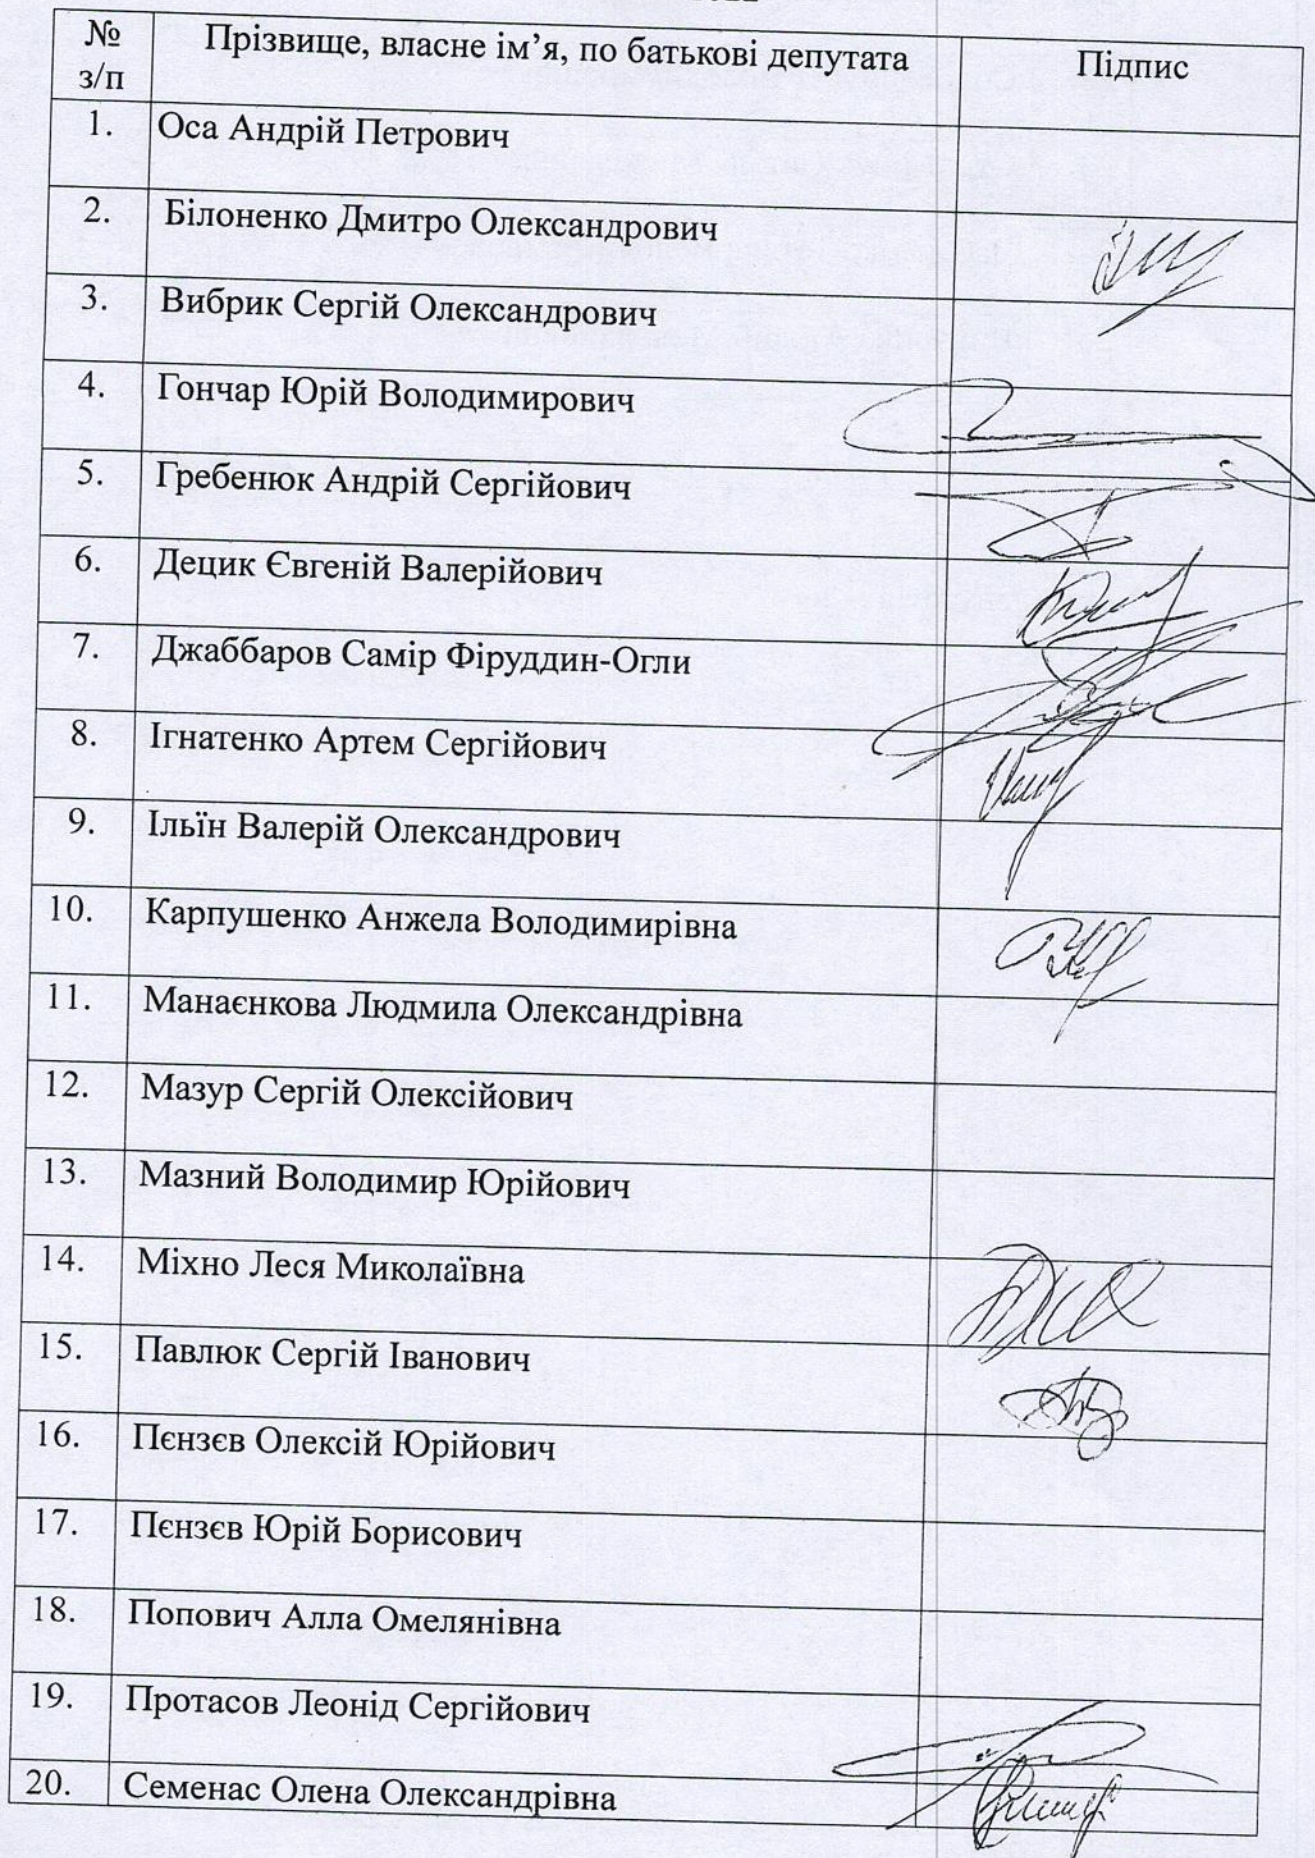 № з/п Прізвище, власне ім’я, по батькові депутата Підпис
1. Оса Андрій Петрович
2. Білоненко Дмитро Олександрович
3. Вибрик Сергій Олександрович
4. Гончар Юрій Володимирович
5. Гребенюк Андрій Сергійович
6. Децик Євгеній Валерійович
7. Джаббаров Самір Фіруддин-Огли
8. Ігнатенко Артем Сергійович
9. Ільїн Валерій Олександрович
10. Карпушенко Анжела Володимирівна
11. Манаєнкова Людмила Олександрівна
12. Мазур Сергій Олексійович
13. Мазний Володимир Юрійович
14. Міхно Леся Миколаївна
15. Павлюк Сергій Іванович
16. Пєнзєв Олексій Юрійович
17. Пєнзєв Юрій Борисович
18. Попович Алла Омелянівна
19. Протасов Леонід Сергійович
20. Семенас Олена Олександрівна